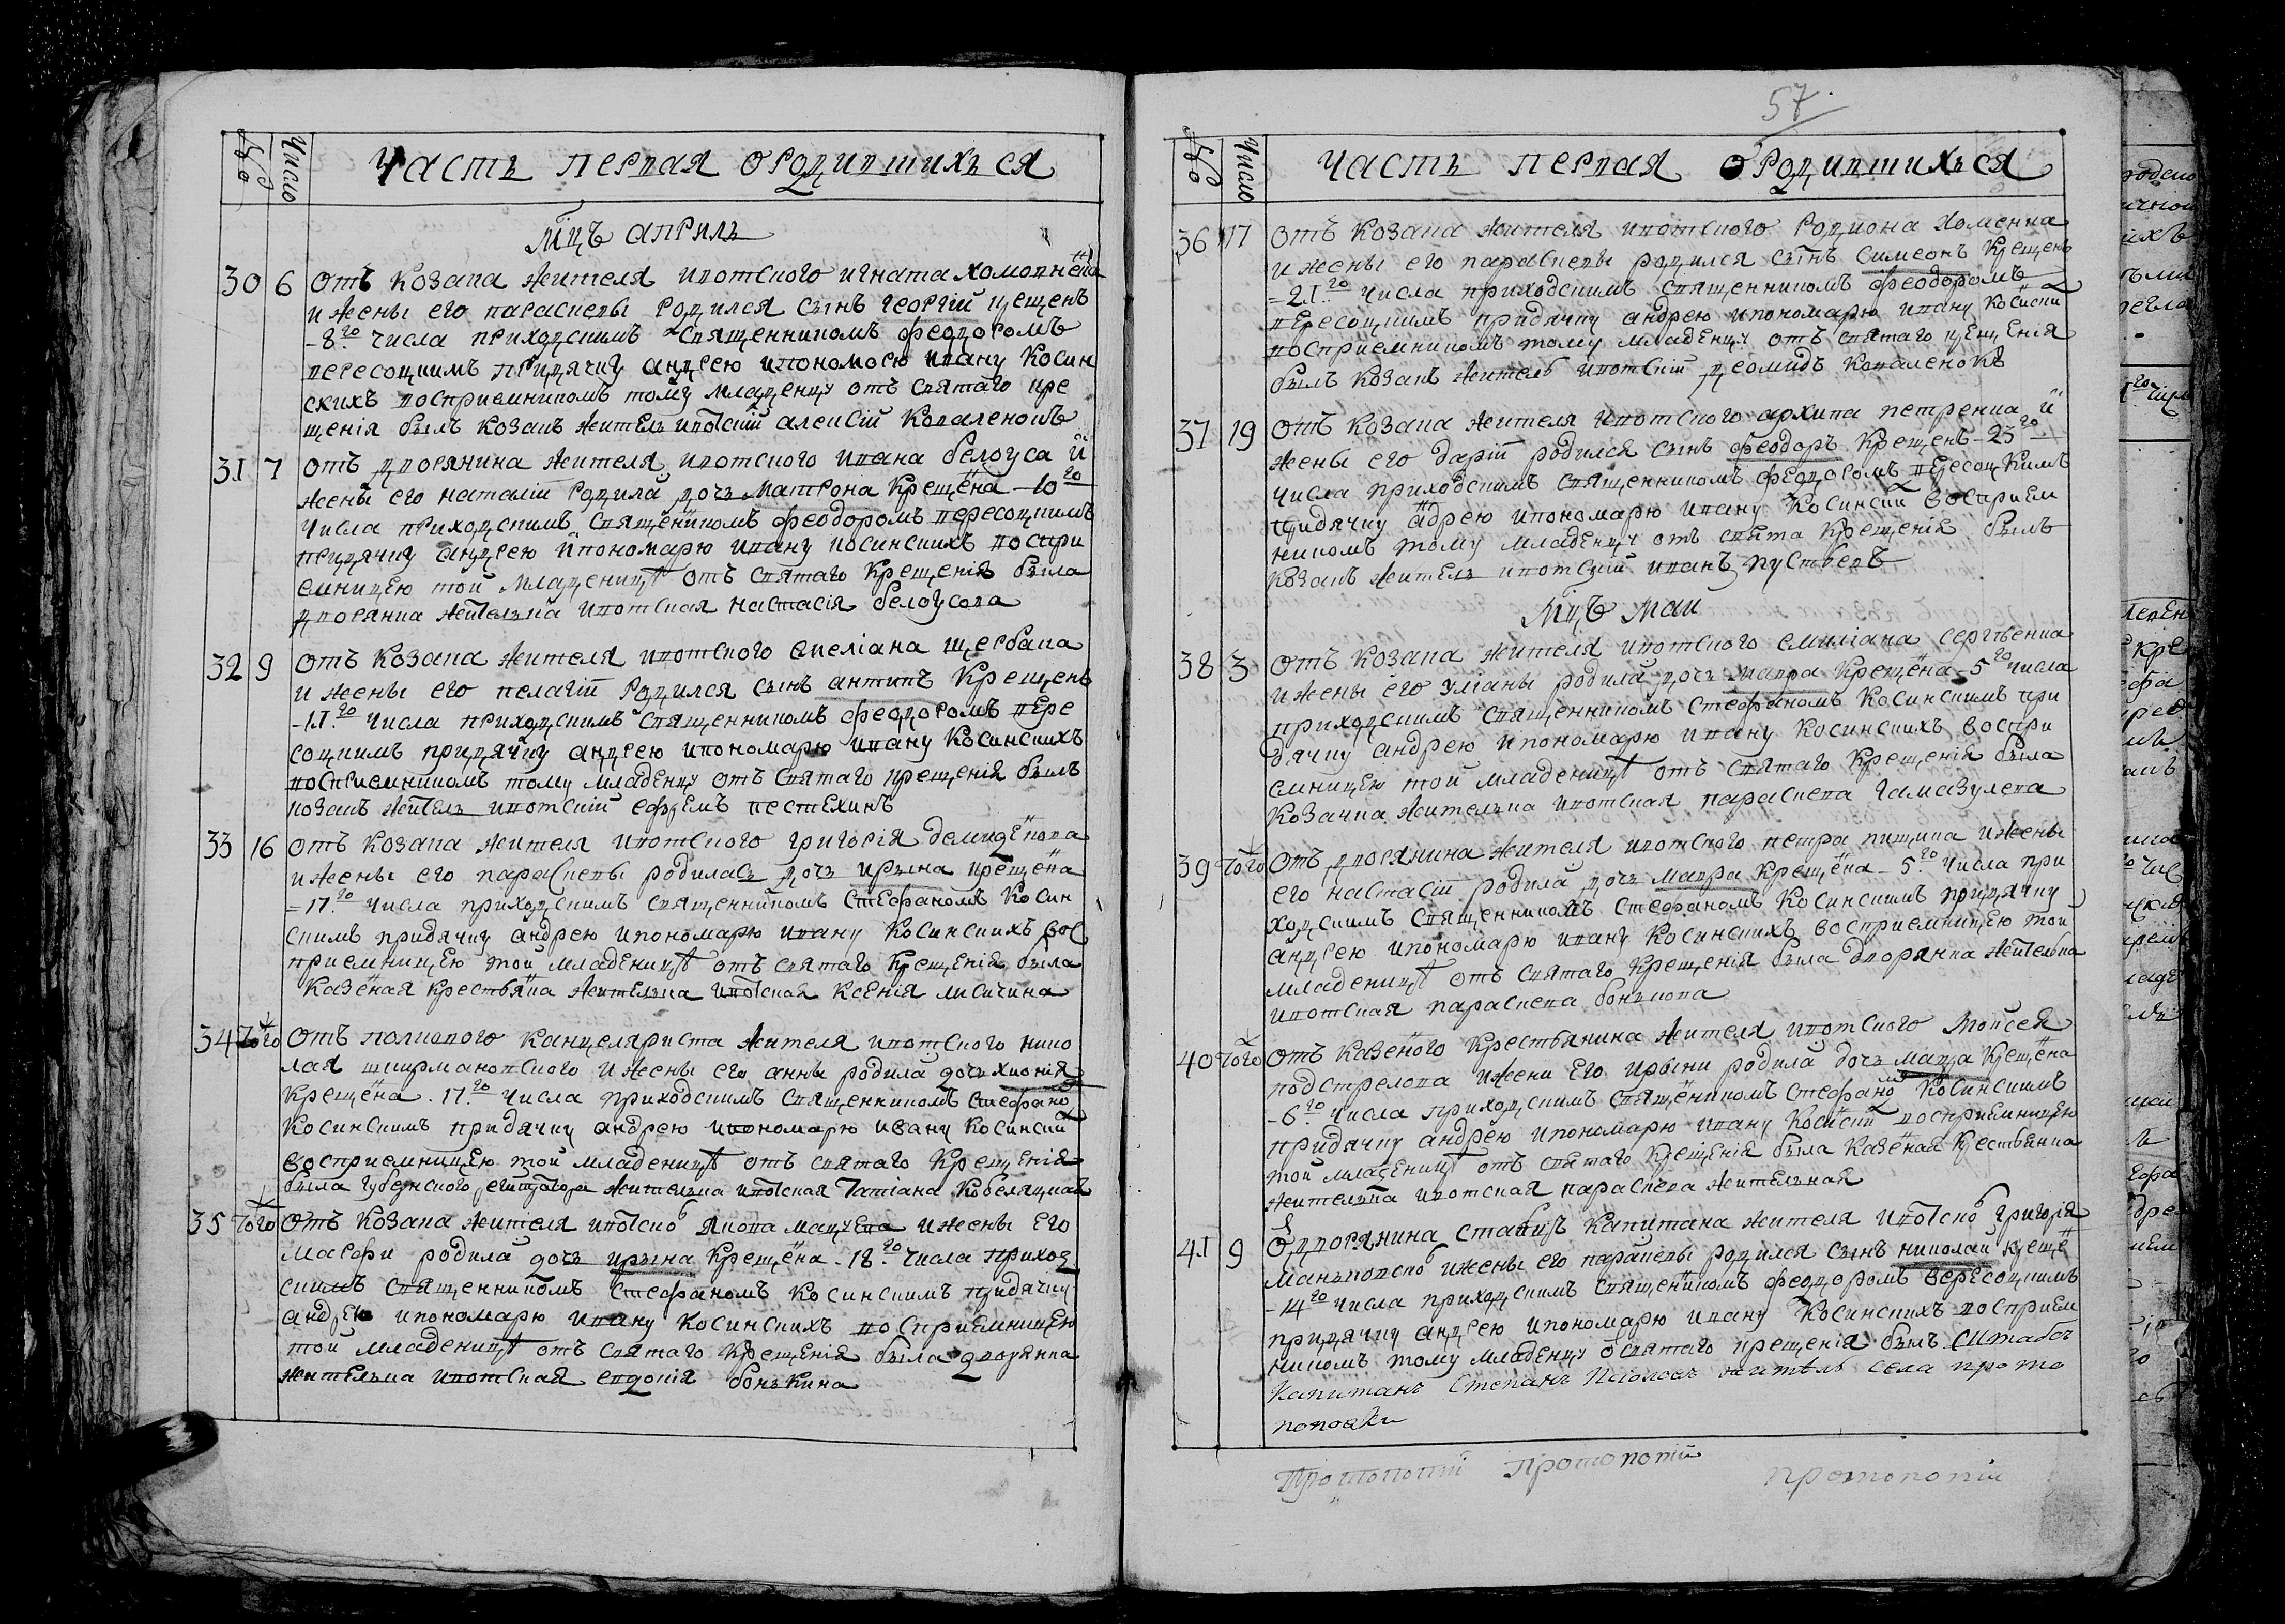 №
Число
Часть первая ородившихъся
Мцъ априль
30 6 отъ козака жителя ивотского игната хомовненка
и жены его параскевы родился сынъ георгий крещенъ
-8го числа приходскимъ священникомъ феодоромъ
вересоцкимъ придячку андрею ипономарю ивану косин
скихъ восприемникомъ тому младенцу отъ святаго кре
щенія былъ козакъ житель ивотскій алексій коваленокъ
31 7 отъ дворянина жителя ивотского ивана белоуса и
жены его наталіи родила дочь матрона крещена -10го
числа приходскимъ священикомъ феодоромъ вересоцкимъ
придячку андрею ипономарю ивану косинскихъ воспри
емницею той младеницѣ отъ святаго крещенія была
дворянка жителька ивотская настасія белоусова
32 9 отъ козака жителя ивотского емеліана щербака
и жены его пелагіи родился сынъ антипъ крещенъ
-11го числа приходскимъ священникомъ феодоромъ вере
соцкимъ придячку андрею ипономарю ивану косинскихъ
восприемникомъ тому младенцу отъ святаго крещенія былъ
козакъ житель ивотскій ефремъ пестехинъ
33 16 отъ козака жителя ивотского григорія демиденкова
и жены его параскевы родилась дочь ирына крещена
=17го числа приходскимъ священникомъ стефаномъ косин
скимъ придячку андрею ипономарю ивану косинскихъ вос
приемницею той младеницѣ отъ святаго крещенія была
казеная крестьянка жителька ивотская ксенія лисичина
34 того отъ полкового канцеляриста жителя ивотского нико
лая ширмановского и жены его анны родила дочь хионія
крещена .17го числа приходскимъ священникомъ стефано
косинскимъ придячку андрею ипономарю ивану косинский
восприемницею той младеницѣ отъ святаго крещенія
была губернского регистратора жителька ивотская татіана кобеляцкая
35 того отъ козака жителя ивотског якова и жены его
марфи родила дочь ирына крещена -18го числа приход
скимъ священникомъ стефаномъ косинскимъ придячку
андрею ипономарю ивану косинскихъ восприемницею
той младеницѣ отъ святаго крещенія была дворянка
жителька ивотская евдокія бонькина
57
№
Число
Часть первая ородившихъся
36 17 отъ козака жителя ивотского родиона хоменка
и жены его параскевы родился сынъ симеонъ крещенъ
=21го числа приходскимъ священникомъ феодоромъ
вересоцкимъ придячку андрею ипономарю ивану косински
восприемникомъ тому младенцу отъ святаго крещенія
былъ козакъ житель ивотскій деомидъ коваленокъ
37 19 отъ козака жителя ивотского архипа петренка и
жены его даріи родился сынъ феодоръ крещенъ -23го
числа приходскимъ священникомъ феодоромъ вересоцкимъ
придячку адрею ипономарю ивану косинский восприем
никомъ тому младенцу отъ свята крещенія былъ
козакъ житель ивотскій иванъ
Мцъ май
38 3 отъ козака жителя ивотского емиліана сергѣенка
и жены его уліаны родила дочь мавра крещена -5го числа
приходскимъ священникомъ стефаномъ косинскимъ при
дячку андрею ипономарю ивану косинскихъ воспри
емницею той младеницѣ отъ святаго крещенія была
козачка жителька ивотская параскева гамазулева
39 того отъ дворянина жителя ивотского петра пищика и жены
его настасіи родила дочь мавра крещена -5го числа при
ходскимъ священникомъ стефаномъ косинскимъ придячку
андрею ипономарю ивану косинскихъ восприемницею той
младеницѣ отъ святаго крещенія была дворянка жителька
ивотская параскева бонькова
40 того отъ казеного крестьянина жителя ивотского мойсея
подстрелова и жени его ирыни родила дочь мавра крещена
-6го числа приходскимъ священикомъ стефаномъ косинскимъ
придячку андрею ипономарю ивану косински восприемницею
той младеницѣ отъ святаго крещенія была казеная крестьянка
жителька ивотская параскева жителькая
41 9 отъ дворянина стабцъ капитана жителя ивотског григорія
маньковског и жены его параскевы родился сынъ николай креще
-14го числа приходскимъ священикомъ феодоромъ вересоцкимъ
придячку андрею ипономарю ивану косинскихъ восприем
никомъ тому младенцу о святаго крещенія былъ штабсъ
капитанъ степанъ житель села прото
поповки
Протопопій Протопопій протопопіи